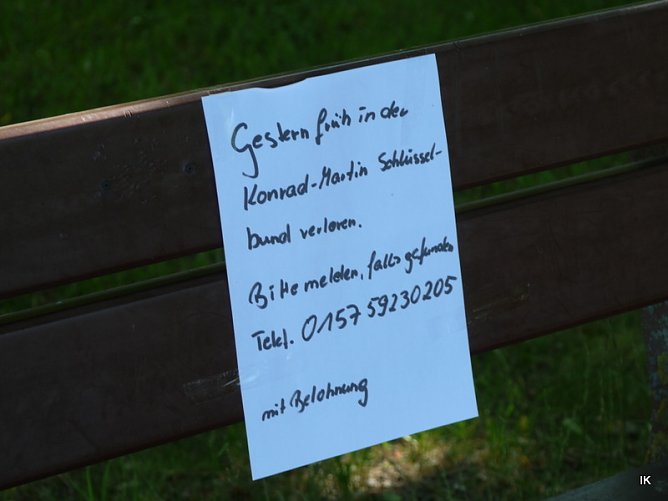 Gestern früh in der
Konrad-Martin Schlüssel-
bund verloren.
Bitte melden, falls gefunden
Telef. 0157 59230205
mit Belohnung
IK